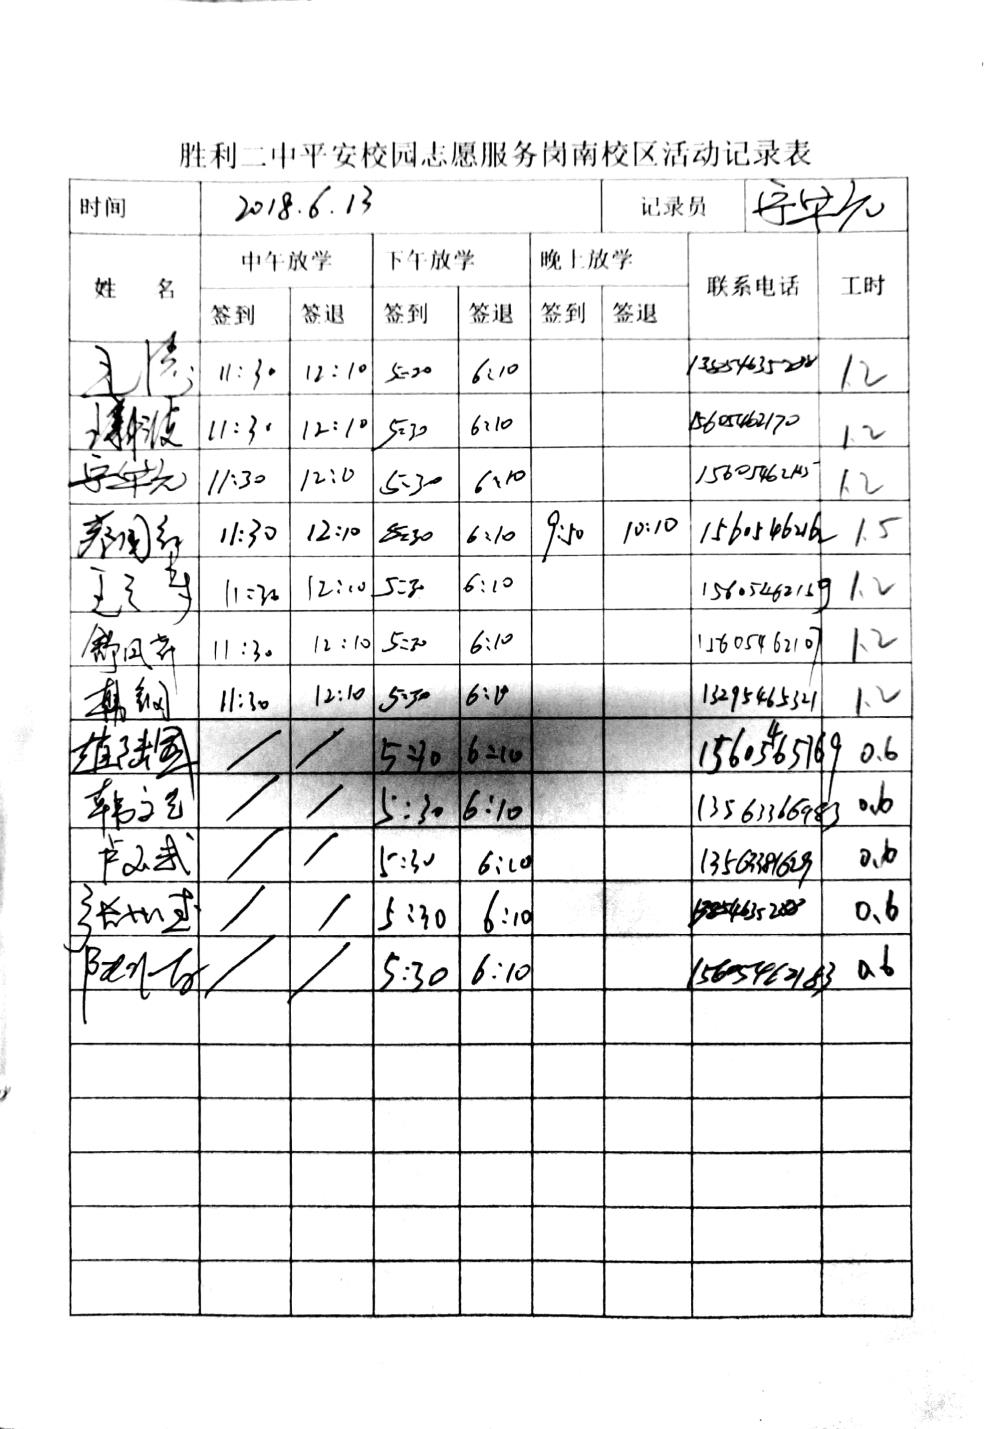 胜利二中平安校园志愿服务岗南校区活动记录表
时间 2018.6.13 记录员
姓 名 中午放学 下午放学 晚上放学 联系电话 工时
签到 签退 签到 签退 签到 签退
王涛 11:30 12:10 5:30 6:10 1.2
11:30 12:10 5:30 6:10 15605462170 1.2
11:30 12:10 5:30 6:10 1.2
11:30 12:10 5:30 6:10 9:50 10:10 15605462162 1.5
11:30 12:10 5:30 6:10 15605462159 1.2
舒风芹 11:30 12:10 5:30 6:10 15605462107 1.2
韩钢 11:30 12:10 5:30 6:10 13295465321 1.2
/ / 5:30 6:10 15605465769 0.6
韩文艺 / / 5:30 6:10 13563366983 0.6
/ / 5:30 6:10 13563381629 0.6
/ / 5:30 6:10 0.6
/ / 5:30 6:10 15605462183 0.6